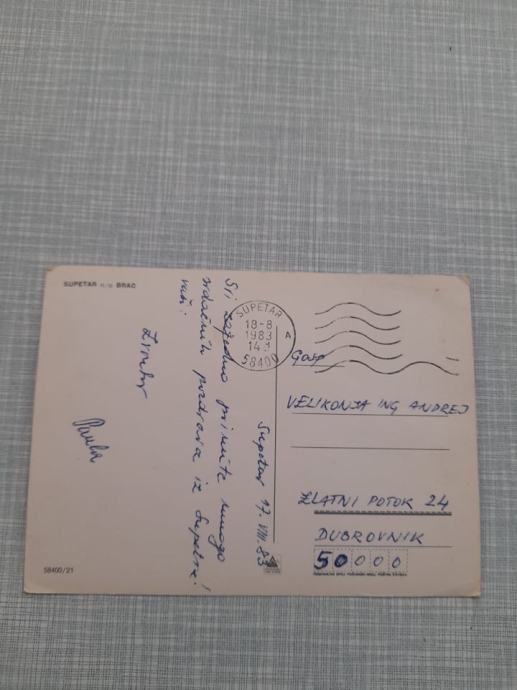 SUPETAR n/o BRAČ
Supetar 17. VIII. 83
Svi zajedno primite mnogo
srdačnih pozdrava iz Supetra!
vaši:
Zvonko
Pavla
58400/21
SUPETAR
18-8
1983
14
A
58400
Gosp
VELIKONJA ING ANDREJ
ZLATNI POTOK 24
DUBROVNIK
50000